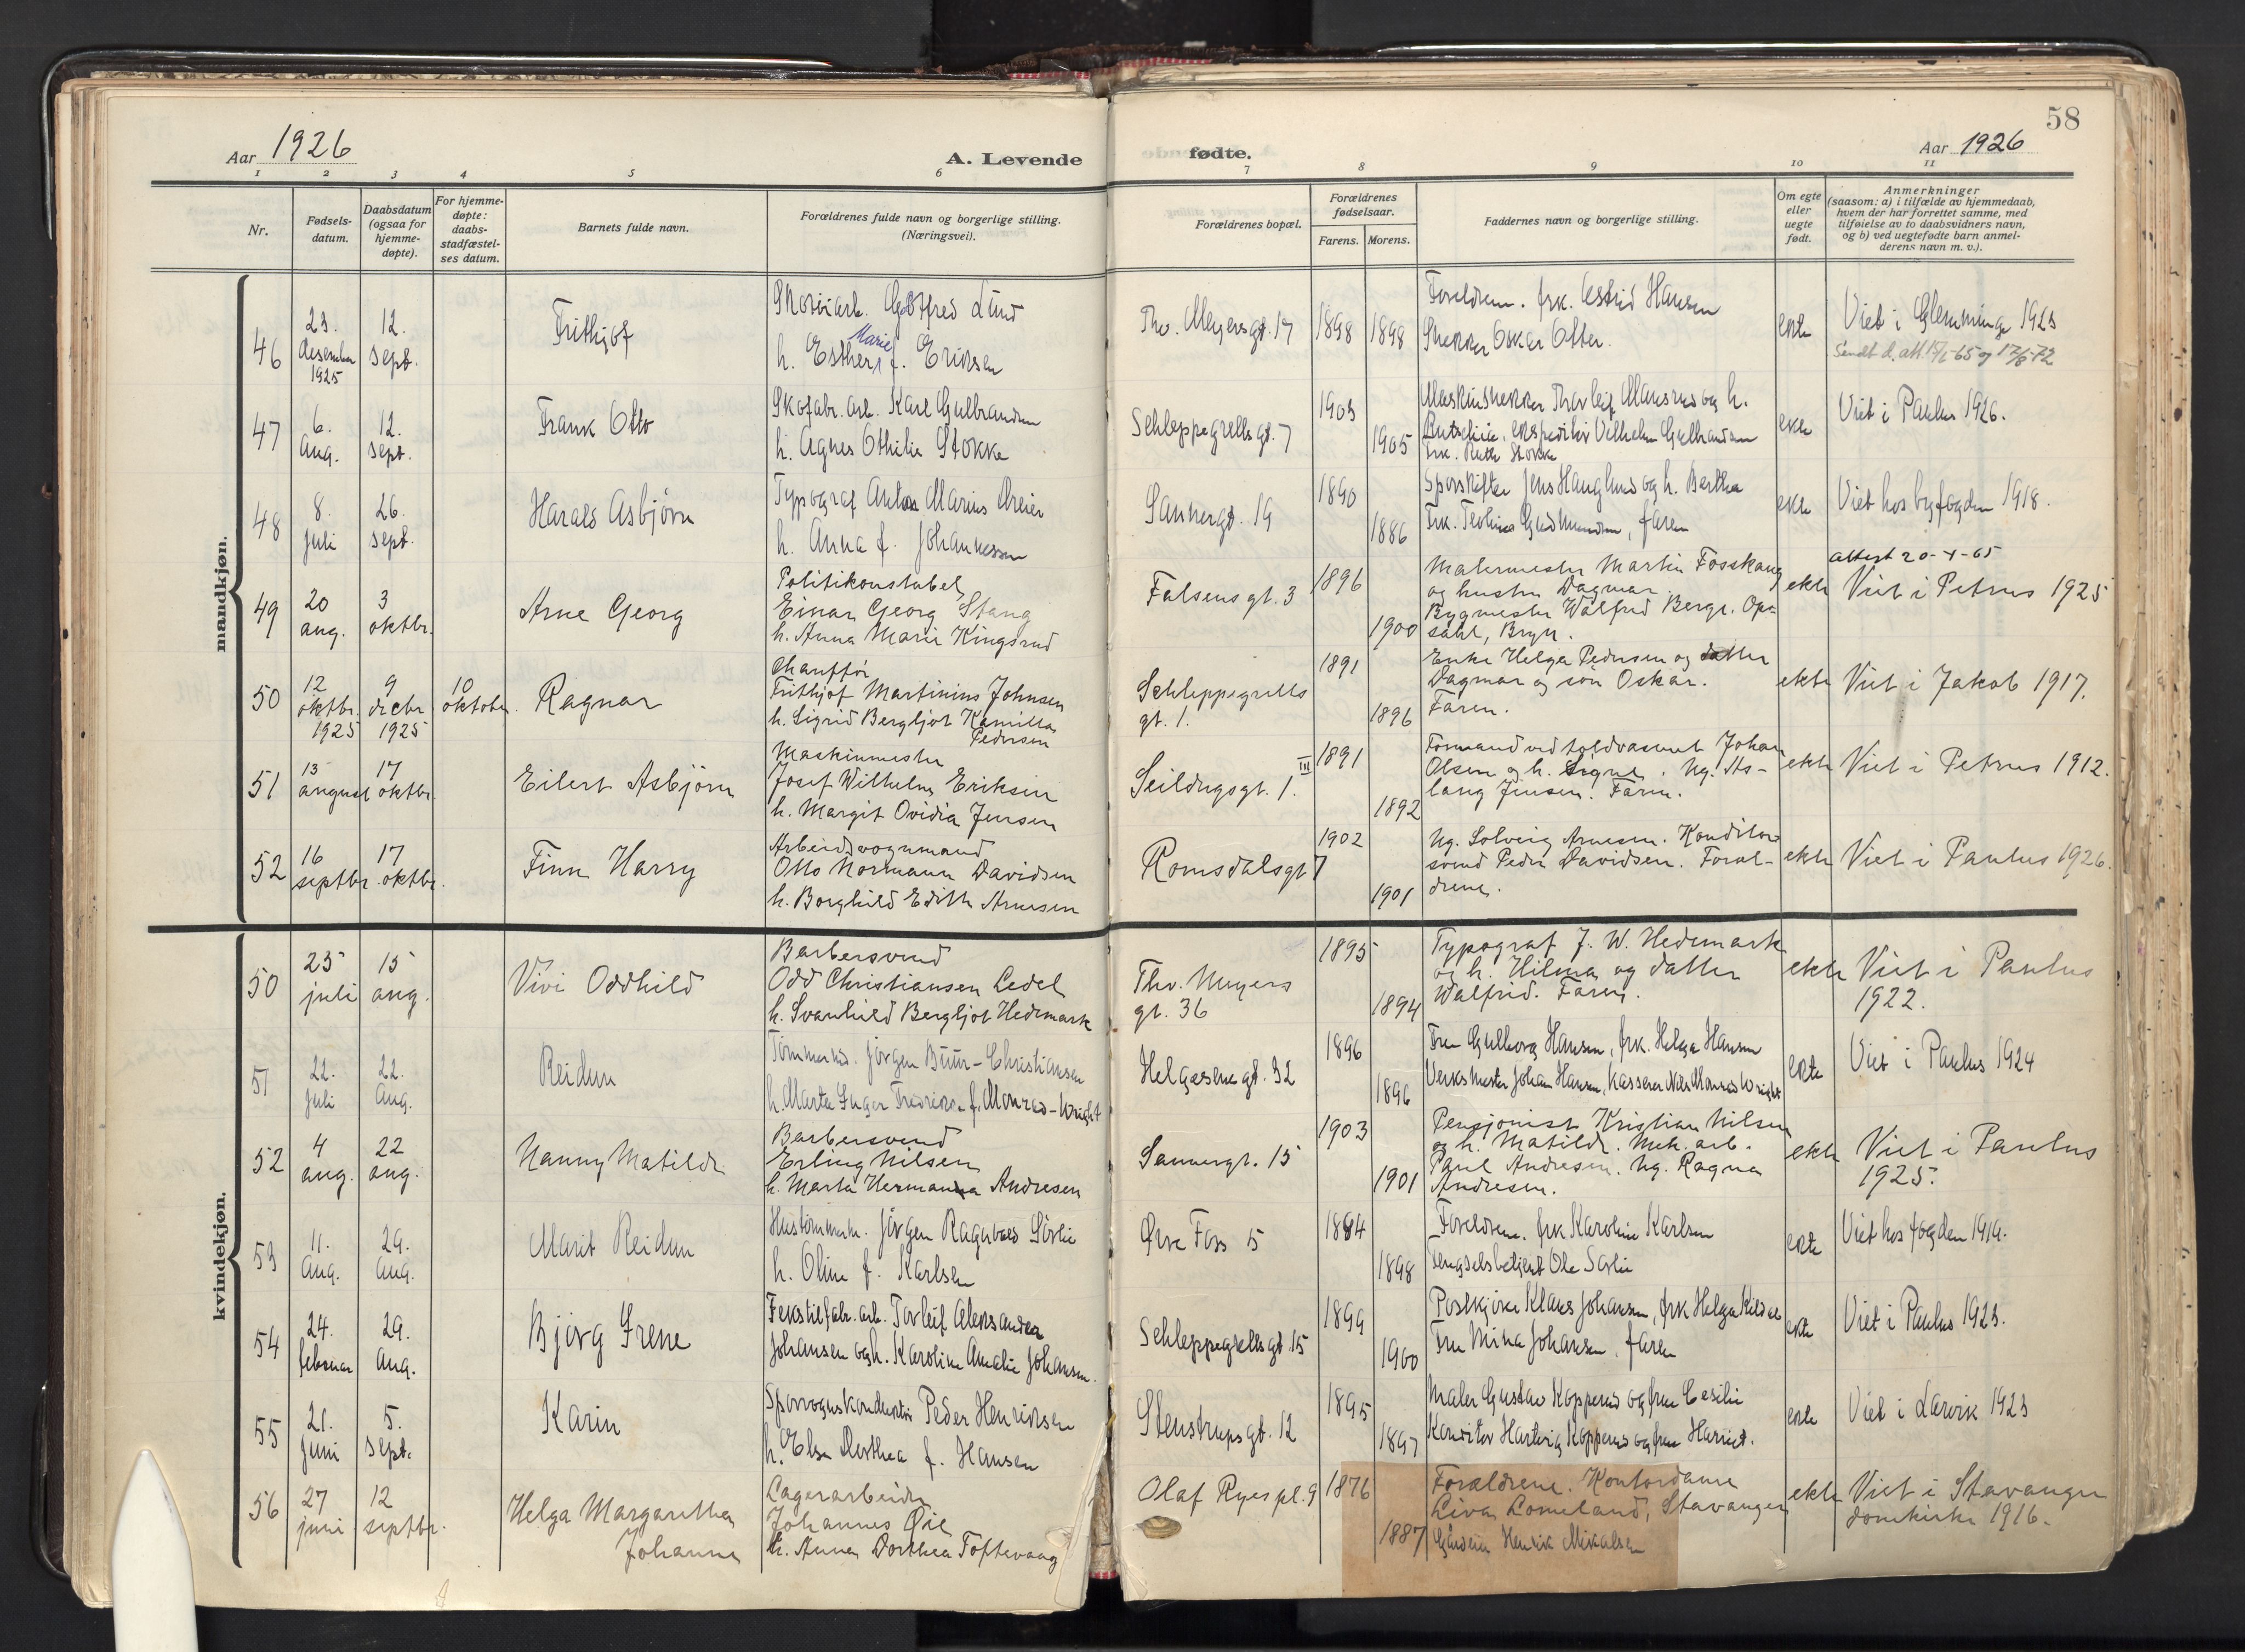 58
Aar 1926
A. Levende fødte.
Aar 1926
1 2 3 4 5 6 7 8 9 10 11
Nr.
Fødsels-
datum.
Daabsdatum
(ogsaa for
hjemme-
døpte).
For hjemme-
døpte:
daabs-
stadfæstel-
ses datum.
Barnets fulde navn.
Forældrenes fulde navn og borgerlige stilling.
(Næringsvei).
Forældrenes bopæl.
Forældrenes
fødselsaar.
Farens. Morens.
Faddernes navn og borgerlige stilling.
Om egte
eller
uegte
født.
Anmerkninger
(saasom: a) i tilfælde av hjemmedaab,
hvem der har forrettet samme, med
tilføielse av to daabsvidners navn,
og b) ved uegtefødte barn anmel-
derens navn m. v.).
mandkjøn.
46
23.
desember
1925
12.
sept.
Frithjof
Gotfred Lund
h. Esther Marie f. Eriksen
Thv. Meyersgt. 17
1898
1898
Foreldrene. frk. Astrid Hansen
Oskar Otter.
ekte
Viet i Glemminge 1923
47
6.
Aug.
12.
sept.
Frank Otto
Skofabr. arb. Karl Gulbrandsen
h. Agnes Othilie Stokke
Schleppegrellsgt. 7
1903
1905
h.
Vilhelm Gulbrandsen
Frk. Ruth Stokke
ekte
Viet i Paulus 1926.
48
8.
juli
26.
sept.
Harald Asbjørn
Typograf Anton Marius Dreier
h. Anna f. Johannessen
Sannergt. 19
1890
1886
Sporskifter Jens Hauglund og h. Bertha
Frk. Gudmundsen, faren
ekte
Viet hos byfogden 1918.
49
20
aug.
3
oktbr.
Arne Georg
Politikonstabel
Einar Georg Stang
h. Anna Marie Kingsrud
Falsensgt. 3
1896
1900
Malermester Martin Fosskaug
og hustru Dagmar.
Bygmester Walfred Bergr. Op-
sahl, Bryn.
ekte
attest 20-X-65
Viet i Petrus 1925
50
12
oktbr.
1925
9
decbr
1925
10
oktober
Ragnar
Chauffør
Frithjof Martinius Johnsen
h. Sigrid Bergljot Kamilla
Pedersen
Schleppegrells
gt. 1.
1891
1896
Enke Helga Pedersen og datter
Dagmar og søn Oskar.
Faren.
ekte
Viet i Jakob 1917.
51
13
august
17
oktbr.
Eilert Asbjørn
Maskinmester
Josef Wilhelm Eriksen
h. Margit Ovidia Jensen
Seildugsgt. 1. III
1891
1892
Formand ved toldvæsenet Johan
Olsen og h. Signe. Ug. As-
laug Jensen. Faren.
ekte
Viet i Petrus 1912.
52
16
septbr.
17
oktbr.
Finn Harry
Arbeidsvognmand
Otto Normann Davidsen
h. Borghild Edith Arnesen
Romsdalsgt 7
1902
1901
Ug. Solveig Arnesen. Konditor
svend Peder Davidsen. Foræl-
drene.
ekte
Viet i Paulus 1926.
kvindekjøn.
50
25
juli
15
aug.
Vivi Oddhild
Barbersvend
Odd Christiansen Ledel
h. Svanhild Bergljot Hedemark
Thv. Meyers
gt. 36
1895
1894
Typograf J. W. Hedemark
og h. Hilma og datter
Walfrid. Faren.
ekte
Viet i Paulus
1922.
51
22.
juli
22.
Aug.
Reidun
Jørgen Buur-Christiansen
h. Marta Inger Fredrikke f. Monrad-Wright
Helgesensgt. 32
1896
1896
Fru Gullborg Hansen, frk. Helga Hansen
Verksmester Johan Hansen, Kasserer Nils Monrad Wright
ekte
Viet i Paulus 1924
52
4
aug.
22
aug.
Nanny Matilde
Barbersvend
Erling Nilsen
h. Marta Hermana Andresen
Sannergt. 15
1903
1901
Pensjonist Kristian Nilsen
og h. Matilde. Mek. arb.
Paul Andresen. Ug. Ragna
Andresen.
ekte
Viet i Paulus
1925.
53
11.
Aug.
29.
Aug.
Marit Reidun
Hustømmerm. Jørgen Ragnvald Sørlie
h. Oline f. Karlsen
Øvre Foss 5
1884
1898
Foreldrene. frk Karoline Karlsen
Fengselsbetjent Ole Sørlie
ekte
Viet hos fogden 1919.
54
24.
februar
29.
Aug.
Bjørg Irene
Tekstilfabr. arb. Torleif Aleksander
Johansen og h. Karoline Amalie Johansen.
Schleppegrellsgt. 15
1899
1900
Postkjører Klaus Johansen, frk Helga Kildal
Fru Mina Johansen. faren
ekte
Viet i Paulus 1923.
55
21.
juni
5.
sept.
Karin
Sporvognskonduktør Peder Henriksen
h. Elsa Dorthea f. Hansen
Stenstrupsgt. 12
1895
1897
Maler Gustav Kopperud og frue Cesilie
Konditor Hartvig Kopperud og frue Harriet.
ekte
Viet i Larvik 1923
56
27
juni
12
septbr.
Helga Margarethe
Johanne
Lagerarbeider
Johannes Øie
h. Anna Dorthea Toftevaag
Olaf Ryes pl. 9
1876
1887
Forældrene. Kontordame
Liva Lomeland, Stavanger
Henrik Mikalsen
ekte
Viet i Stavanger
domkirke 1916.